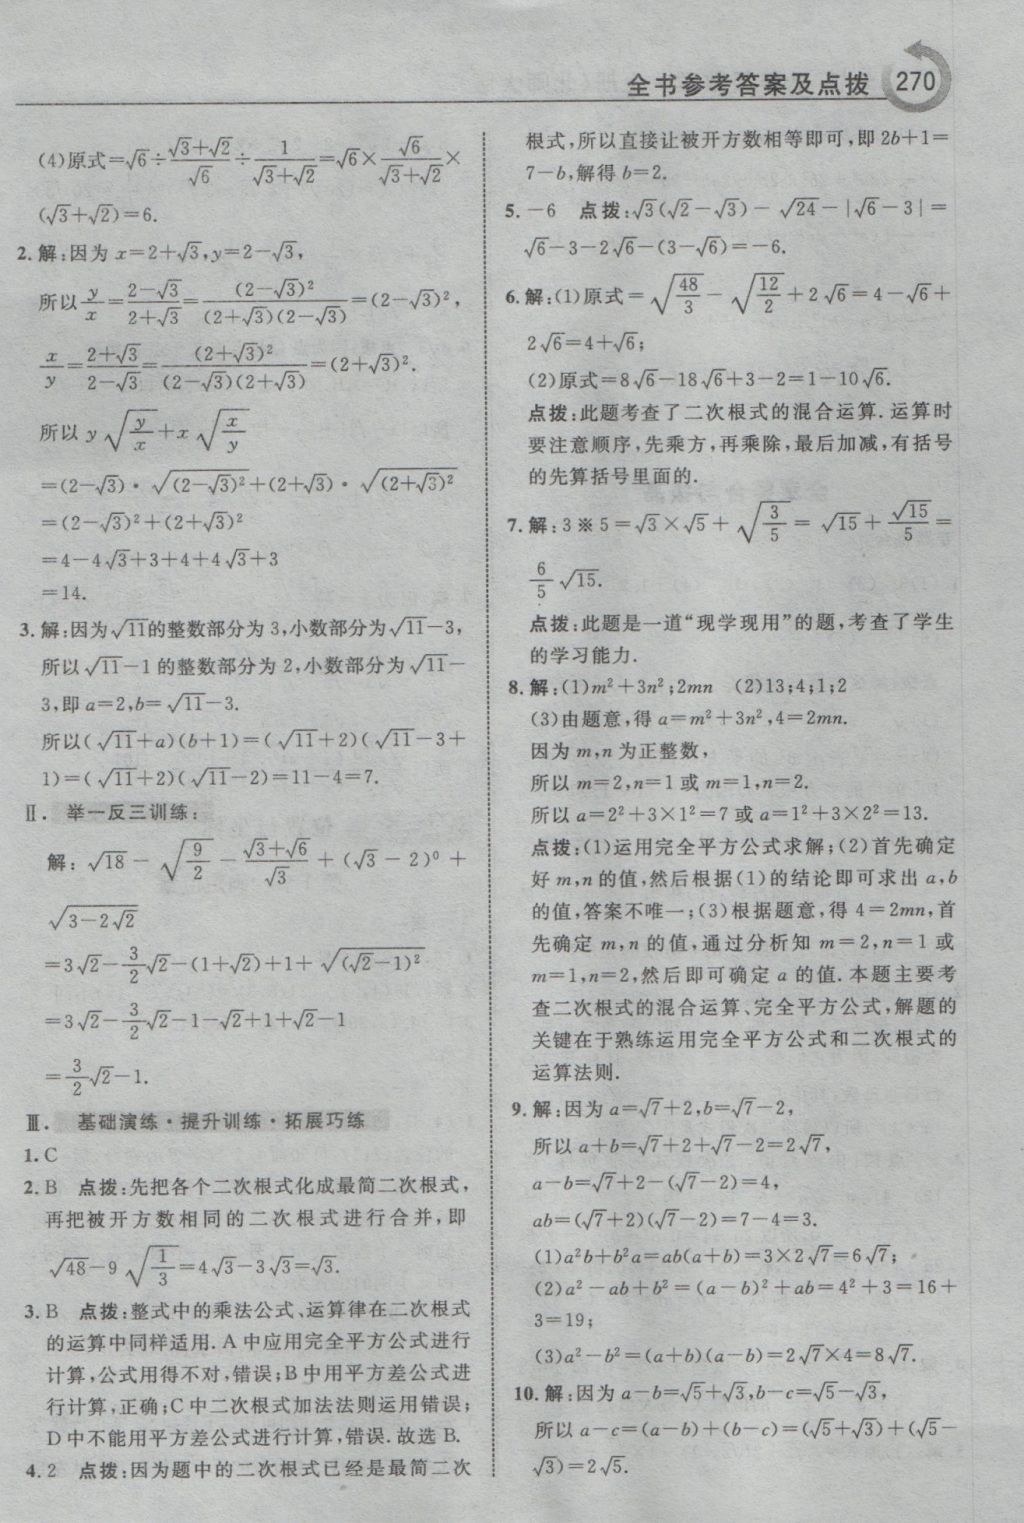 全书参考答案及点拨 270
(4)原式=√6÷(√3+√2)/√6÷1/(√3+√2)=√6×√6/(√3+√2)×
(√3+√2)=6.
2.解:因为x=2+√3,y=2-√3,
所以y/x=(2-√3)/(2+√3)=(2-√3)²/((2+√3)(2-√3))=(2-√3)²,
x/y=(2+√3)/(2-√3)=(2+√3)²/((2-√3)(2+√3))=(2+√3)².
所以y√(y/x)+x√(x/y)
=(2-√3)·√((2-√3)²)+(2+√3)·√((2+√3)²)
=(2-√3)²+(2+√3)²
=4-4√3+3+4+4√3+3
=14.
3.解:因为√11的整数部分为3,小数部分为√11-3,
所以√11-1的整数部分为2,小数部分为√11-
3,即a=2,b=√11-3.
所以(√11+a)(b+1)=(√11+2)(√11-3+
1)=(√11+2)(√11-2)=11-4=7.
Ⅱ. 举一反三训练:
解:√18-√(9/2)-(√3+√6)/√3+(√3-2)⁰+
√(3-2√2)
=3√2-3/2√2-(1+√2)+1+√((√2-1)²)
=3√2-3/2√2-1-√2+1+√2-1
=3/2√2-1.
Ⅲ. 基础演练·提升训练·拓展巧练
1.C
2.B 点拨:先把各个二次根式化成最简二次根式,
再把被开方数相同的二次根式进行合并,即
√48-9√(1/3)=4√3-3√3=√3.
3.B 点拨:整式中的乘法公式、运算律在二次根式
的运算中同样适用.A中应用完全平方公式进行
计算,公式用得不对,错误;B中用平方差公式进
行计算,正确;C中二次根式加法法则运用错误;
D中不能用平方差公式进行计算,错误.故选B.
4.2 点拨:因为题中的二次根式已经是最简二次
根式,所以直接让被开方数相等即可,即2b+1=
7-b,解得b=2.
5.-6 点拨:√3(√2-√3)-√24-|√6-3|=
√6-3-2√6-(3-√6)=-6.
6.解:(1)原式=√(48/3)-√(12/2)+2√6=4-√6+
2√6=4+√6;
(2)原式=8√6-18√6+3-2=1-10√6.
点拨:此题考查了二次根式的混合运算.运算时
要注意顺序,先乘方,再乘除,最后加减,有括号
的先算括号里面的.
7.解:3※5=√3×√5+√(3/5)=√15+√15/5=
6/5√15.
点拨:此题是一道“现学现用”的题,考查了学生
的学习能力.
8.解:(1)m²+3n²;2mn (2)13;4;1;2
(3)由题意,得a=m²+3n²,4=2mn.
因为m,n为正整数,
所以m=2,n=1或m=1,n=2.
所以a=2²+3×1²=7或a=1²+3×2²=13.
点拨:(1)运用完全平方公式求解;(2)首先确定
好m,n的值,然后根据(1)的结论即可求出a,b
的值,答案不唯一;(3)根据题意,得4=2mn,首
先确定m,n的值,通过分析知m=2,n=1或
m=1,n=2,然后即可确定a的值.本题主要考
查二次根式的混合运算、完全平方公式,解题的
关键在于熟练运用完全平方公式和二次根式的
运算法则.
9.解:因为a=√7+2,b=√7-2,
所以a+b=√7+2+√7-2=2√7,
a-b=√7+2-(√7-2)=4,
ab=(√7+2)(√7-2)=7-4=3.
(1)a²b+b²a=ab(a+b)=3×2√7=6√7;
(2)a²-ab+b²=(a-b)²+ab=4²+3=16+
3=19;
(3)a²-b²=(a+b)(a-b)=2√7×4=8√7.
10.解:因为a-b=√5+√3,b-c=√5-√3,
所以a-c=(a-b)+(b-c)=(√5+√3)+(√5-
√3)=2√5.